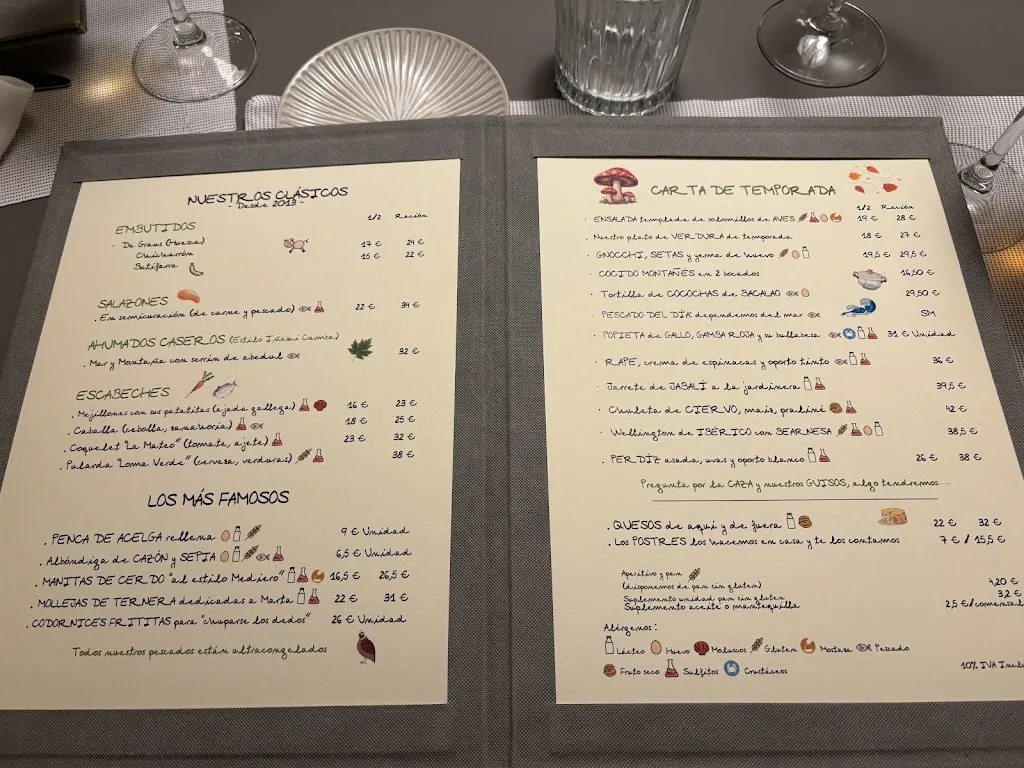 NUESTROS CLÁSICOS
- Desde 2013 -
EMBUTIDOS 1/2 Ración
. De Graus (Huesca) 17 € 24 €
Chicharrón 15 € 22 €
Butifarra
SALAZONES
. En semicuración (de carne y pescado) 22 € 34 €
AHUMADOS CASEROS (Estilo Iñaki Camba)
. Mar y Montaña con serrín de abedul 32 €
ESCABECHES
. Mejillones con sus patatitas (ajada gallega) 16 € 23 €
. Caballa (cebolla, zanahoria) 18 € 25 €
. Coquelet "La Mateo" (tomate, ajete) 23 € 32 €
. Pularda "Loma Verde" (cerveza, verduras) 38 €
LOS MÁS FAMOSOS
. PENCA DE ACELGA rellena 9 € Unidad
. Albóndiga de CAZÓN y SEPIA 6,5 € Unidad
. MANITAS DE CERDO "al estilo Mediero" 16,5 € 26,5 €
. MOLLEJAS DE TERNERA dedicadas a Marta 22 € 31 €
. CODORNICES FRITITAS para "chuparse los dedos" 26 € Unidad
Todos nuestros pescados están ultracongelados
CARTA DE TEMPORADA
1/2 Ración
· ENSALADA templada de solomillos de AVES 19 € 28 €
· Nuestro plato de VERDURA de temporada 18 € 27 €
· GNOCCHI, SETAS y yema de huevo 19,5 € 29,5 €
· COCIDO MONTAÑÉS en 2 bocados 16,50 €
· Tortilla de COCOCHAS de BACALAO 29,50 €
· PESCADO DEL DÍA dependemos del mar SM
· POPIETA de GALLO, GAMBA ROJA y su bullabesa 31 € Unidad
· RAPE, crema de espinacas y oporto tinto 36 €
· Jarrete de JABALÍ a la jardinera 39,5 €
· Chuleta de CIERVO, maíz, praliné 42 €
· Wellington de IBÉRICO con BEARNESA 38,5 €
. PERDIZ asada, uvas y oporto blanco 26 € 38 €
Pregunta por la CAZA y nuestros GUISOS, algo tendremos.....
. QUESOS de aquí y de fuera 22 € 32 €
. Los POSTRES los hacemos en casa y te los contamos 7 € / 15,5 €
Aperitivo y pan 4,20 €
(disponemos de pan sin gluten)
Suplemento unidad pan sin gluten 3,2 €
Suplemento aceite o mantequilla 2,5 €/comensal
Alérgenos:
Lácteo Huevo Moluscos Gluten Mostaza Pescado
Fruto seco Sulfitos Crustáceos
10% IVA